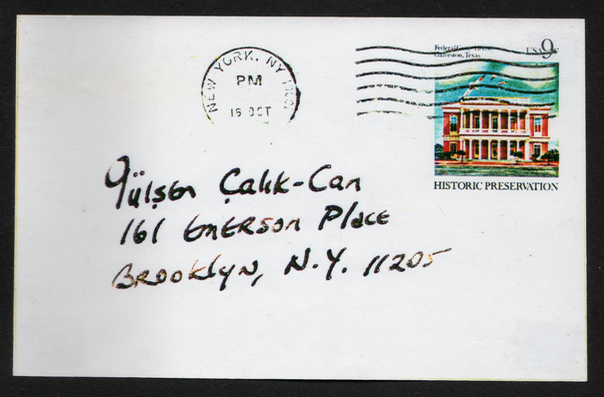 Federal
Galveston, Texas
USA 9c
NEW YORK, NY
PM
16 OCT
HISTORIC PRESERVATION
Gülşen Çalık-Can
161 EMERSON PlACE
BROOKlYN, N.Y. 11205